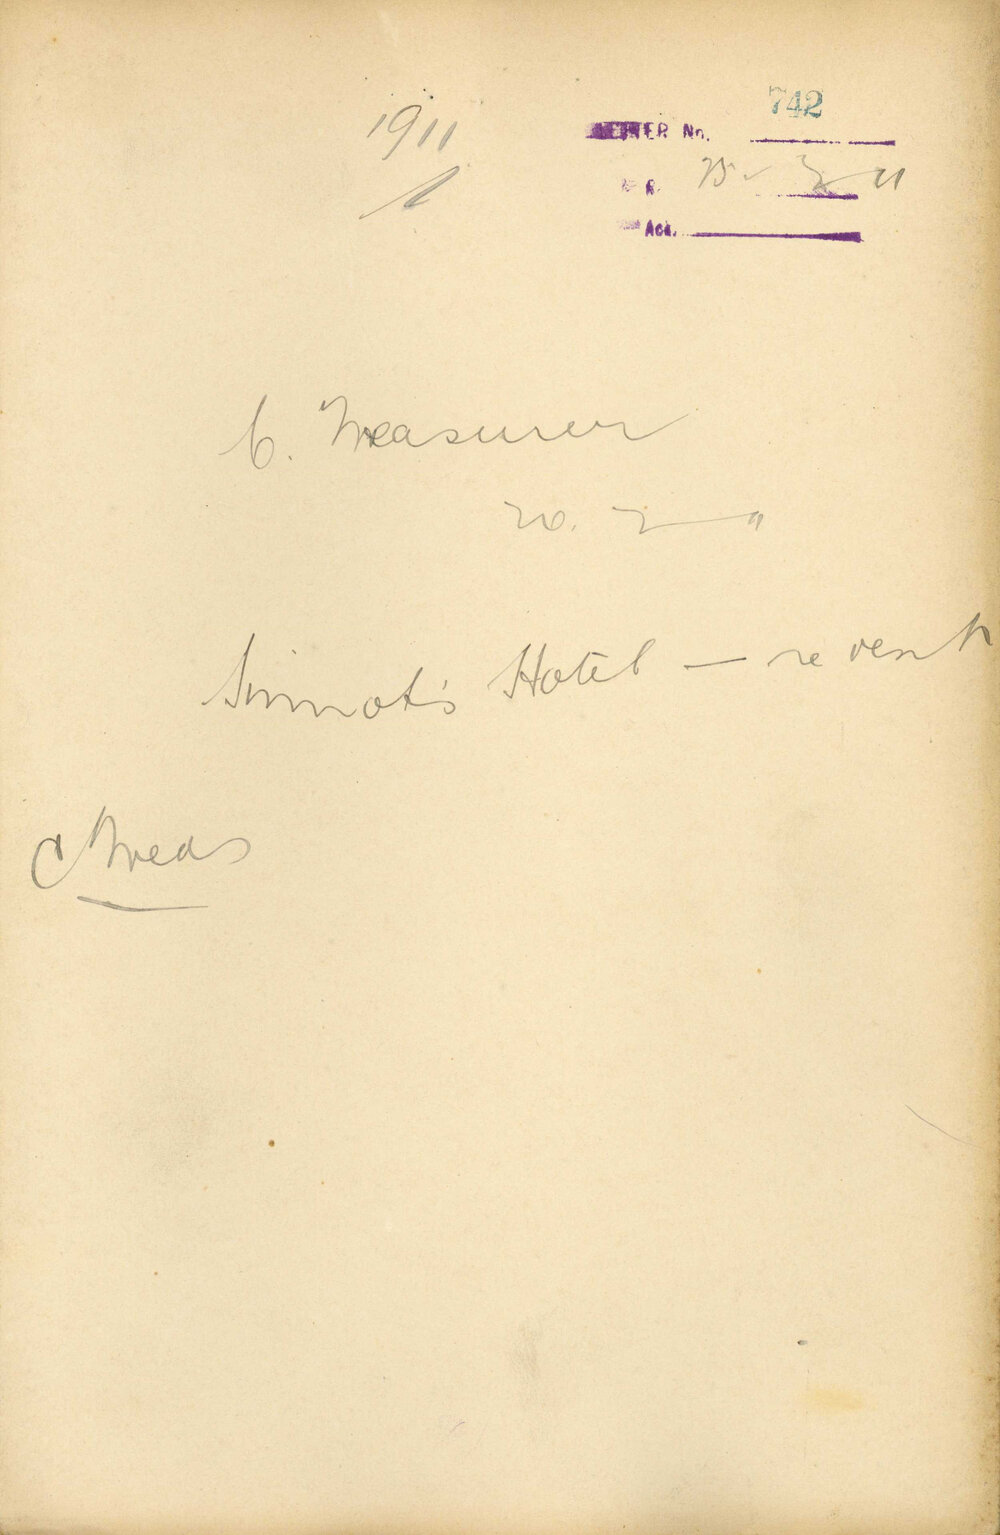 1911
742
LETTER No.
R. 25 - 3 - 11
Act.
C. Treasurer
20. 3 - 11
Sinnot's Hotel — re rent
C Treas